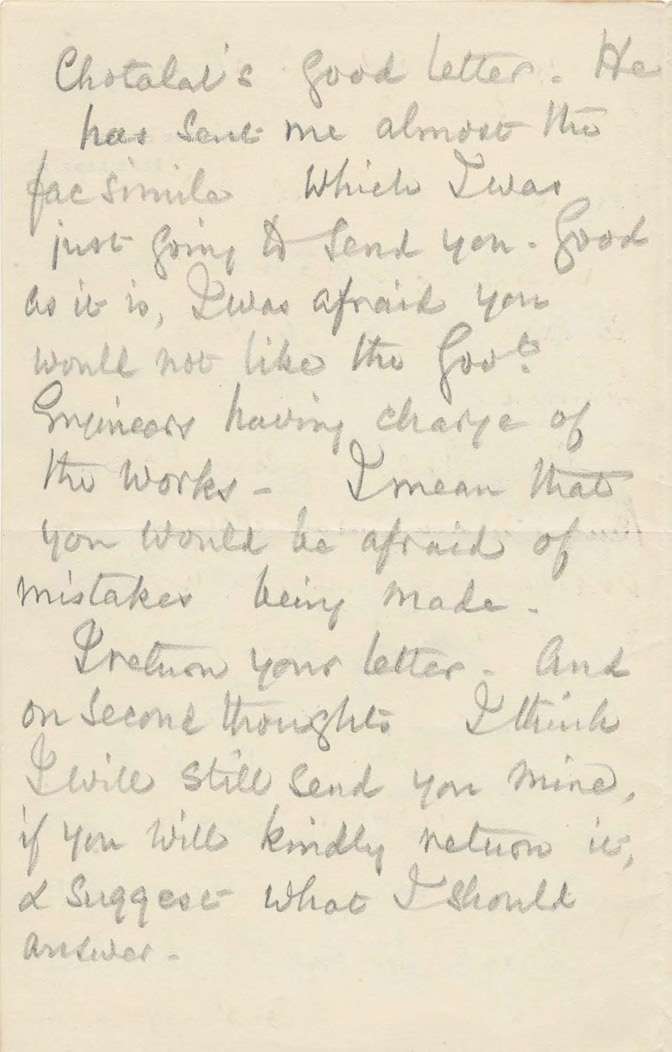 Chotalal's good letter. He
has sent me almost the
facsimile which I was
just going to send you. Good
as it is, I was afraid you
would not like the Govt.
Engineers having charge of
the Works - I mean that
you would be afraid of
mistakes being made -
I return your letter - And
on second thoughts I think
I will still send you mine,
if you will kindly return it,
& suggest what I should
answer -